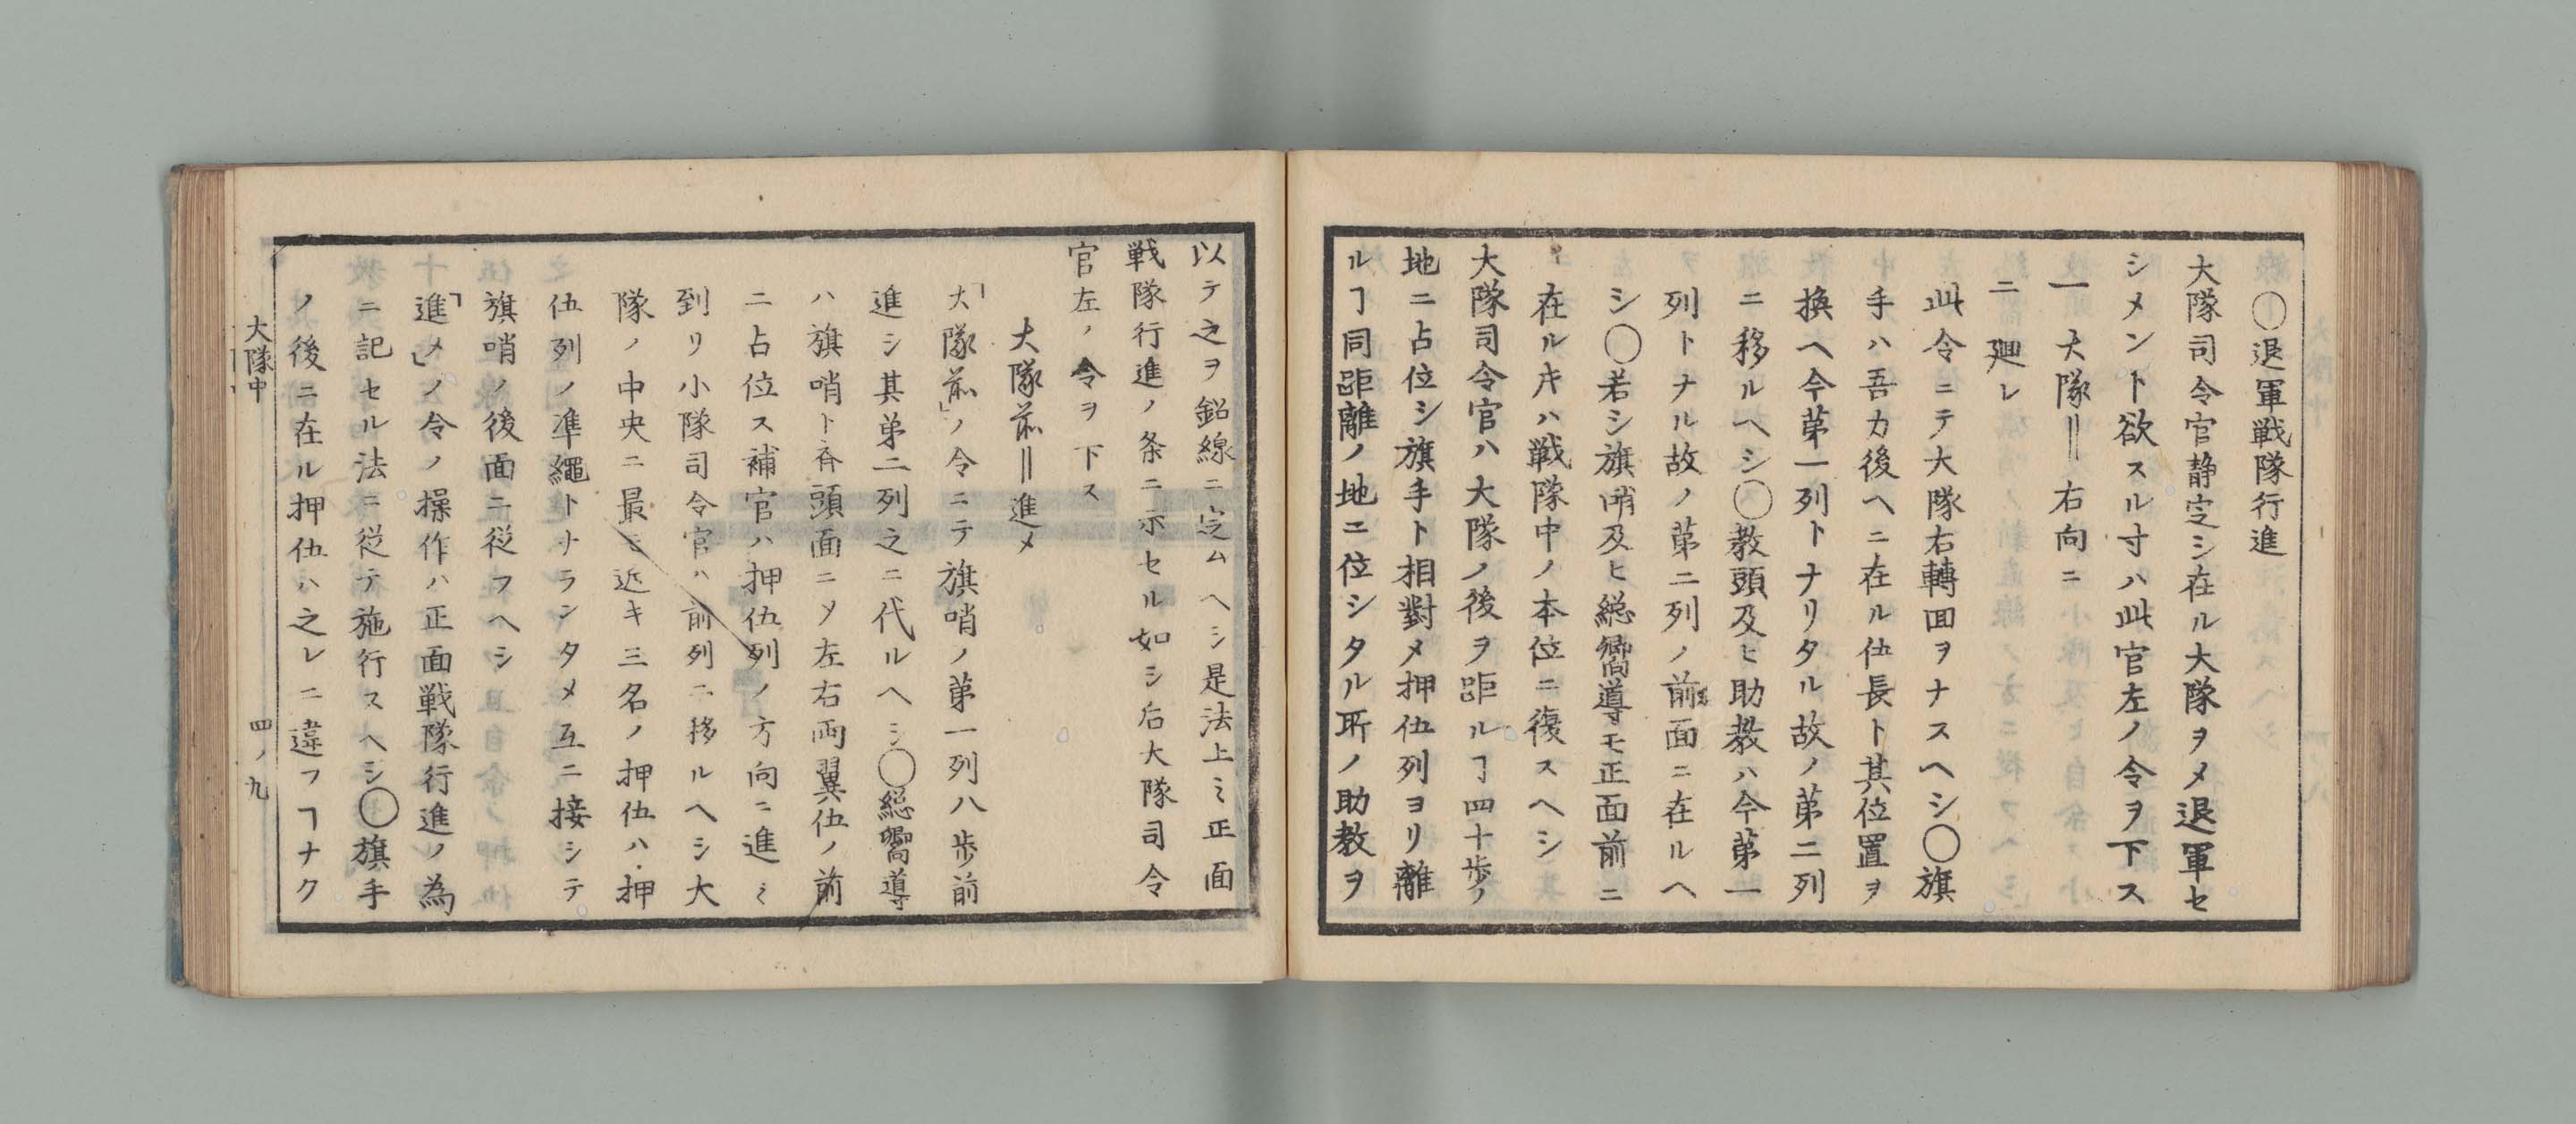 〇退軍戦隊行進
大隊司令官静定シ在ル大隊ヲメ退軍セ
シメント欲スル寸ハ此官左ノ令ヲ下ス
一 大隊‖右向ニ
二 廻レ
此令ニテ大隊右轉回ヲナスヘシ〇旗
手ハ吾カ後ヘニ在ル伍長ト其位置ヲ
換ヘ今第一列トナリタル故ノ第二列
ニ移ルヘシ〇教頭及ヒ助教ハ今第一
列トナル故ノ第二列ノ前面ニ在ルヘ
シ〇若シ旗哨及ヒ総嚮導モ正面前ニ
在ルキハ戦隊中ノ本位ニ復スヘシ
大隊司令官ハ大隊ノ後ヲ距ルヿ四十歩ノ
地ニ占位シ旗手ト相對メ押伍列ヨリ離
ルヿ同距離ノ地ニ位シタル所ノ助教ヲ
以テ之ヲ鉛線ニ定ムヘシ是法上ミ正面
戦隊行進ノ条ニ示セル如シ后大隊司令
官左ノ令ヲ下ス
大隊前‖進メ
「大隊前」ノ令ニテ旗哨ノ第一列八歩前
進シ其第二列之ニ代ルヘシ〇総嚮導
ハ旗哨ト斉頭面ニメ左右両翼伍ノ前
ニ占位ス補官ハ押伍列ノ方向ニ進ミ
到リ小隊司令官ハ前列ニ移ルヘシ大
隊ノ中央ニ最モ近キ三名ノ押伍ハ押
伍列ノ準縄トナランタメ互ニ接シテ
旗哨ノ後面ニ従フヘシ
「進メ」ノ令ノ操作ハ正面戦隊行進ノ為
ニ記セル法ニ従テ施行スヘシ〇旗手
ノ後ニ在ル押伍ハ之レニ違フヿナク
大隊中 四ノ九